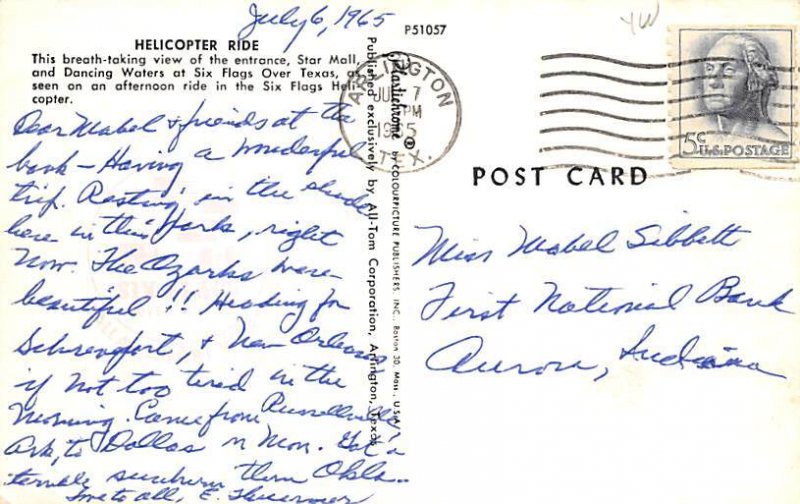 July 6, 1965
P51057
HELICOPTER RIDE
This breath-taking view of the entrance, Star Mall,
and Dancing Waters at Six Flags Over Texas, as
seen on an afternoon ride in the Six Flags Heli-
copter.
Dear Mabel & friends at the
bank - Having a wonderful
trip. Resting in the shade
here in this Park, right
now. The Ozarks were
beautiful !! Heading for
Schreveport, & New Orleans,
if not too tired in the
morning. Came from Russellville,
Ark, to Dallas on Mon. Got a
terrible sunburn thru Okla.
Love to all, E.
Published exclusively by All-Tom Corporation, Arlington, Texas
Plastichrome ® BY COLOURPICTURE PUBLISHERS, INC., Boston 30, Mass., U.S.A.
ARLINGTON
JUL 7
PM
1965
TEX.
5c
U.S. POSTAGE
POST CARD
Miss Mabel Sibbett
First National Bank
Aurora, Indiana